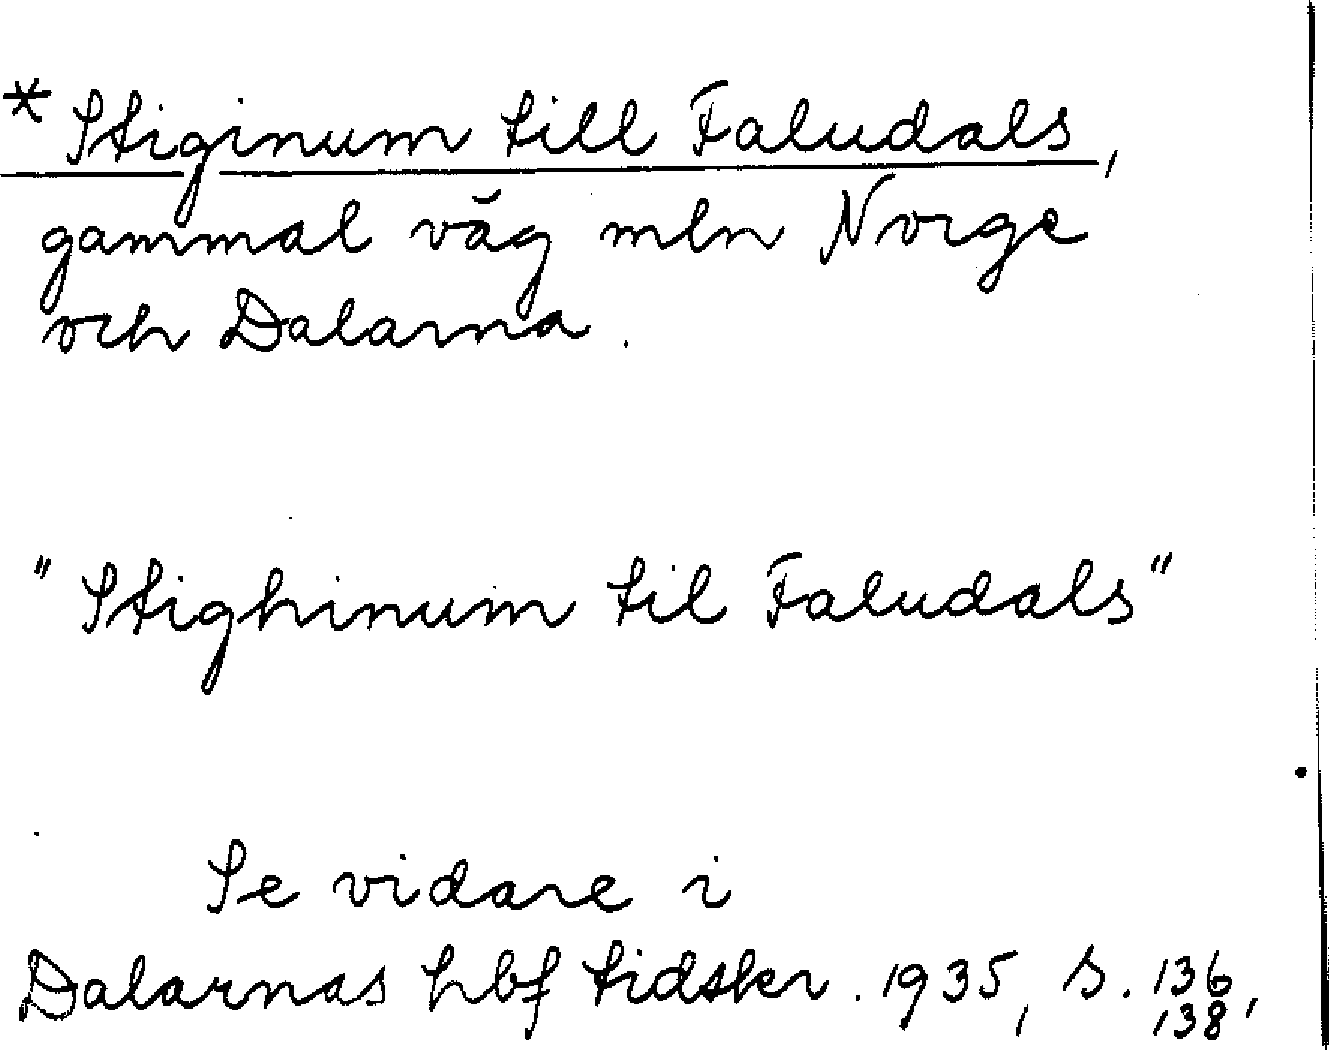 * Stiginum till Faludals,
gammal väg mln Norge
och Dalarna.
"Stighinum til Faludals"
Se vidare i
Dalarnas hbf tidskr. 1935, s. 136,
138,